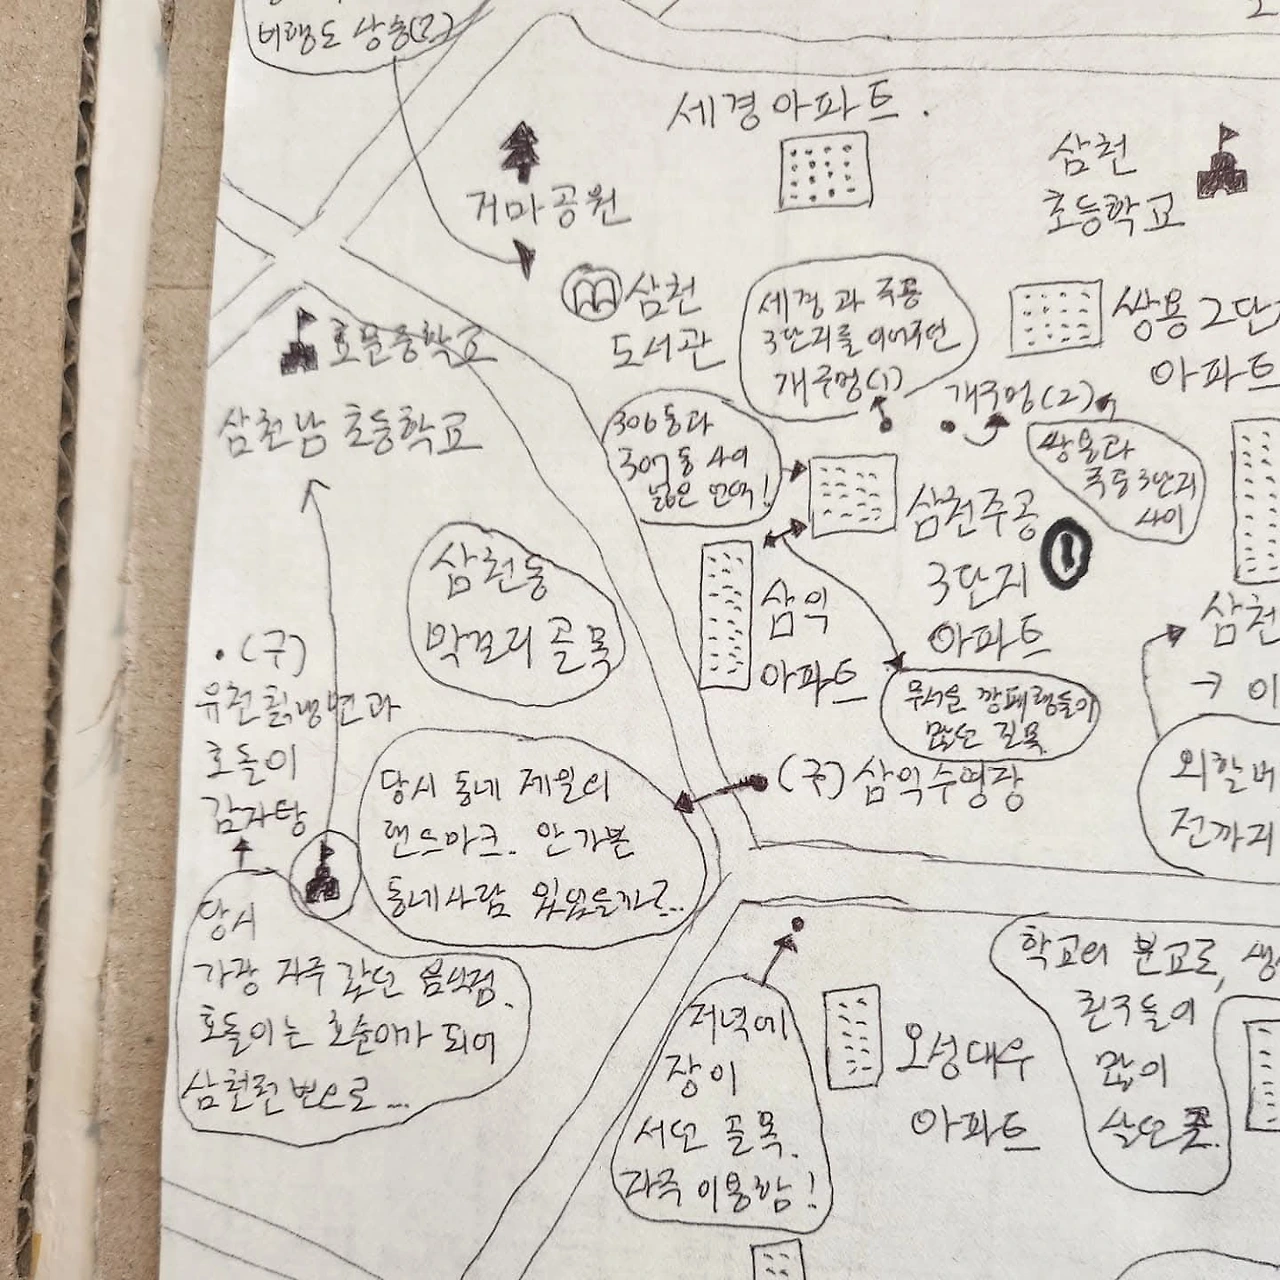 비랭도 상승(?)
세경아파트.
삼천
초등학교
거마공원
삼천
도서관
세경과 주공
3단지를 이어주던
개구멍(1)
쌍용2단
아파트
개구멍(2)
효문중학교
삼천남 초등학교
306동과
307동 사이
넓은 언덕!
쌍용과
주공3단지
사이
삼천주공
3단지
아파트
1
삼천동
막걸리 골목
삼익
아파트
삼천
무서운 깡패형들이
많던 길목
(구)
유천칡냉면과
호돌이
감자탕
당시 동네 제일의
랜드마크. 안 가본
동네사람 있었을까로...
(구)삼익수영장
외할머
전까지
당시
가장 자주 갔던 음식점.
호돌이는 호순이가 되어
삼천천변으로...
저녁에
장이
서던 골목.
자주 이용함!
오성대우
아파트
학교의 분교로, 생
친구들이
많이
살던 곳.